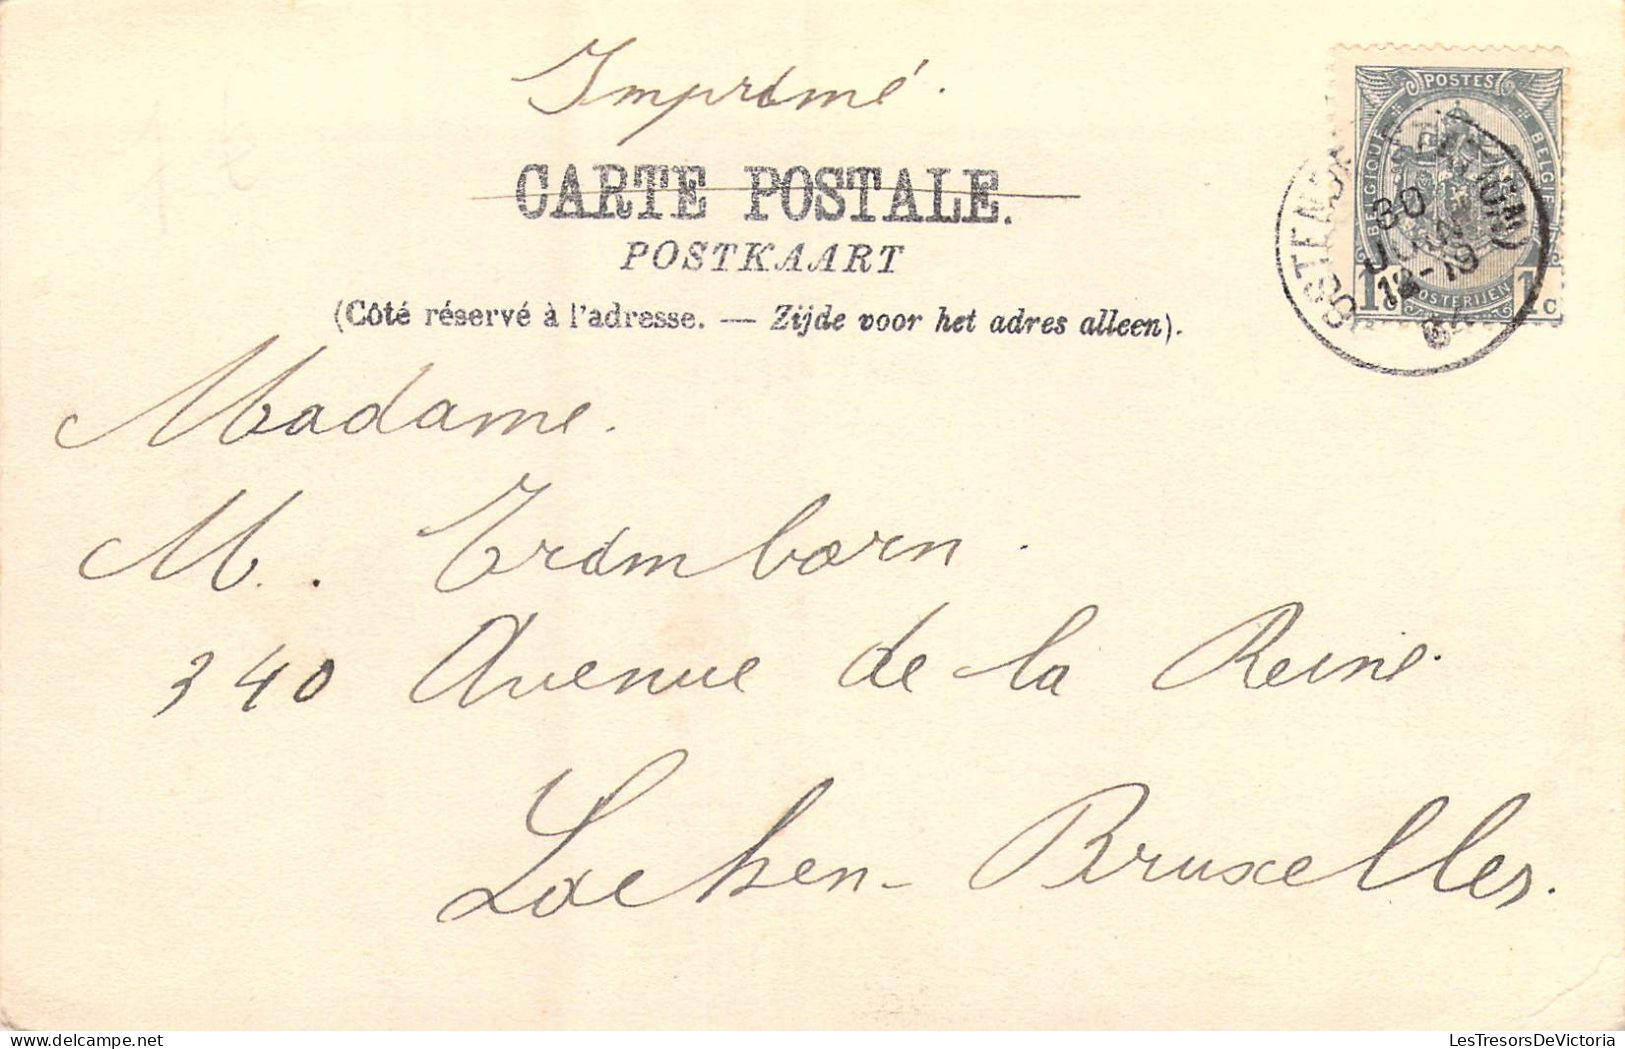 Imprimé.
POSTES
BELGIQUE BELGIË
POSTERIJEN
1 1c
30
18-19
04
CARTE POSTALE.
POSTKAART
(Côté réservé à l'adresse. — Zijde voor het adres alleen).
Madame.
M. Tromborn.
340 Avenue de la Reine.
Laeken-Bruxelles.
LesTresorsDeVictoria